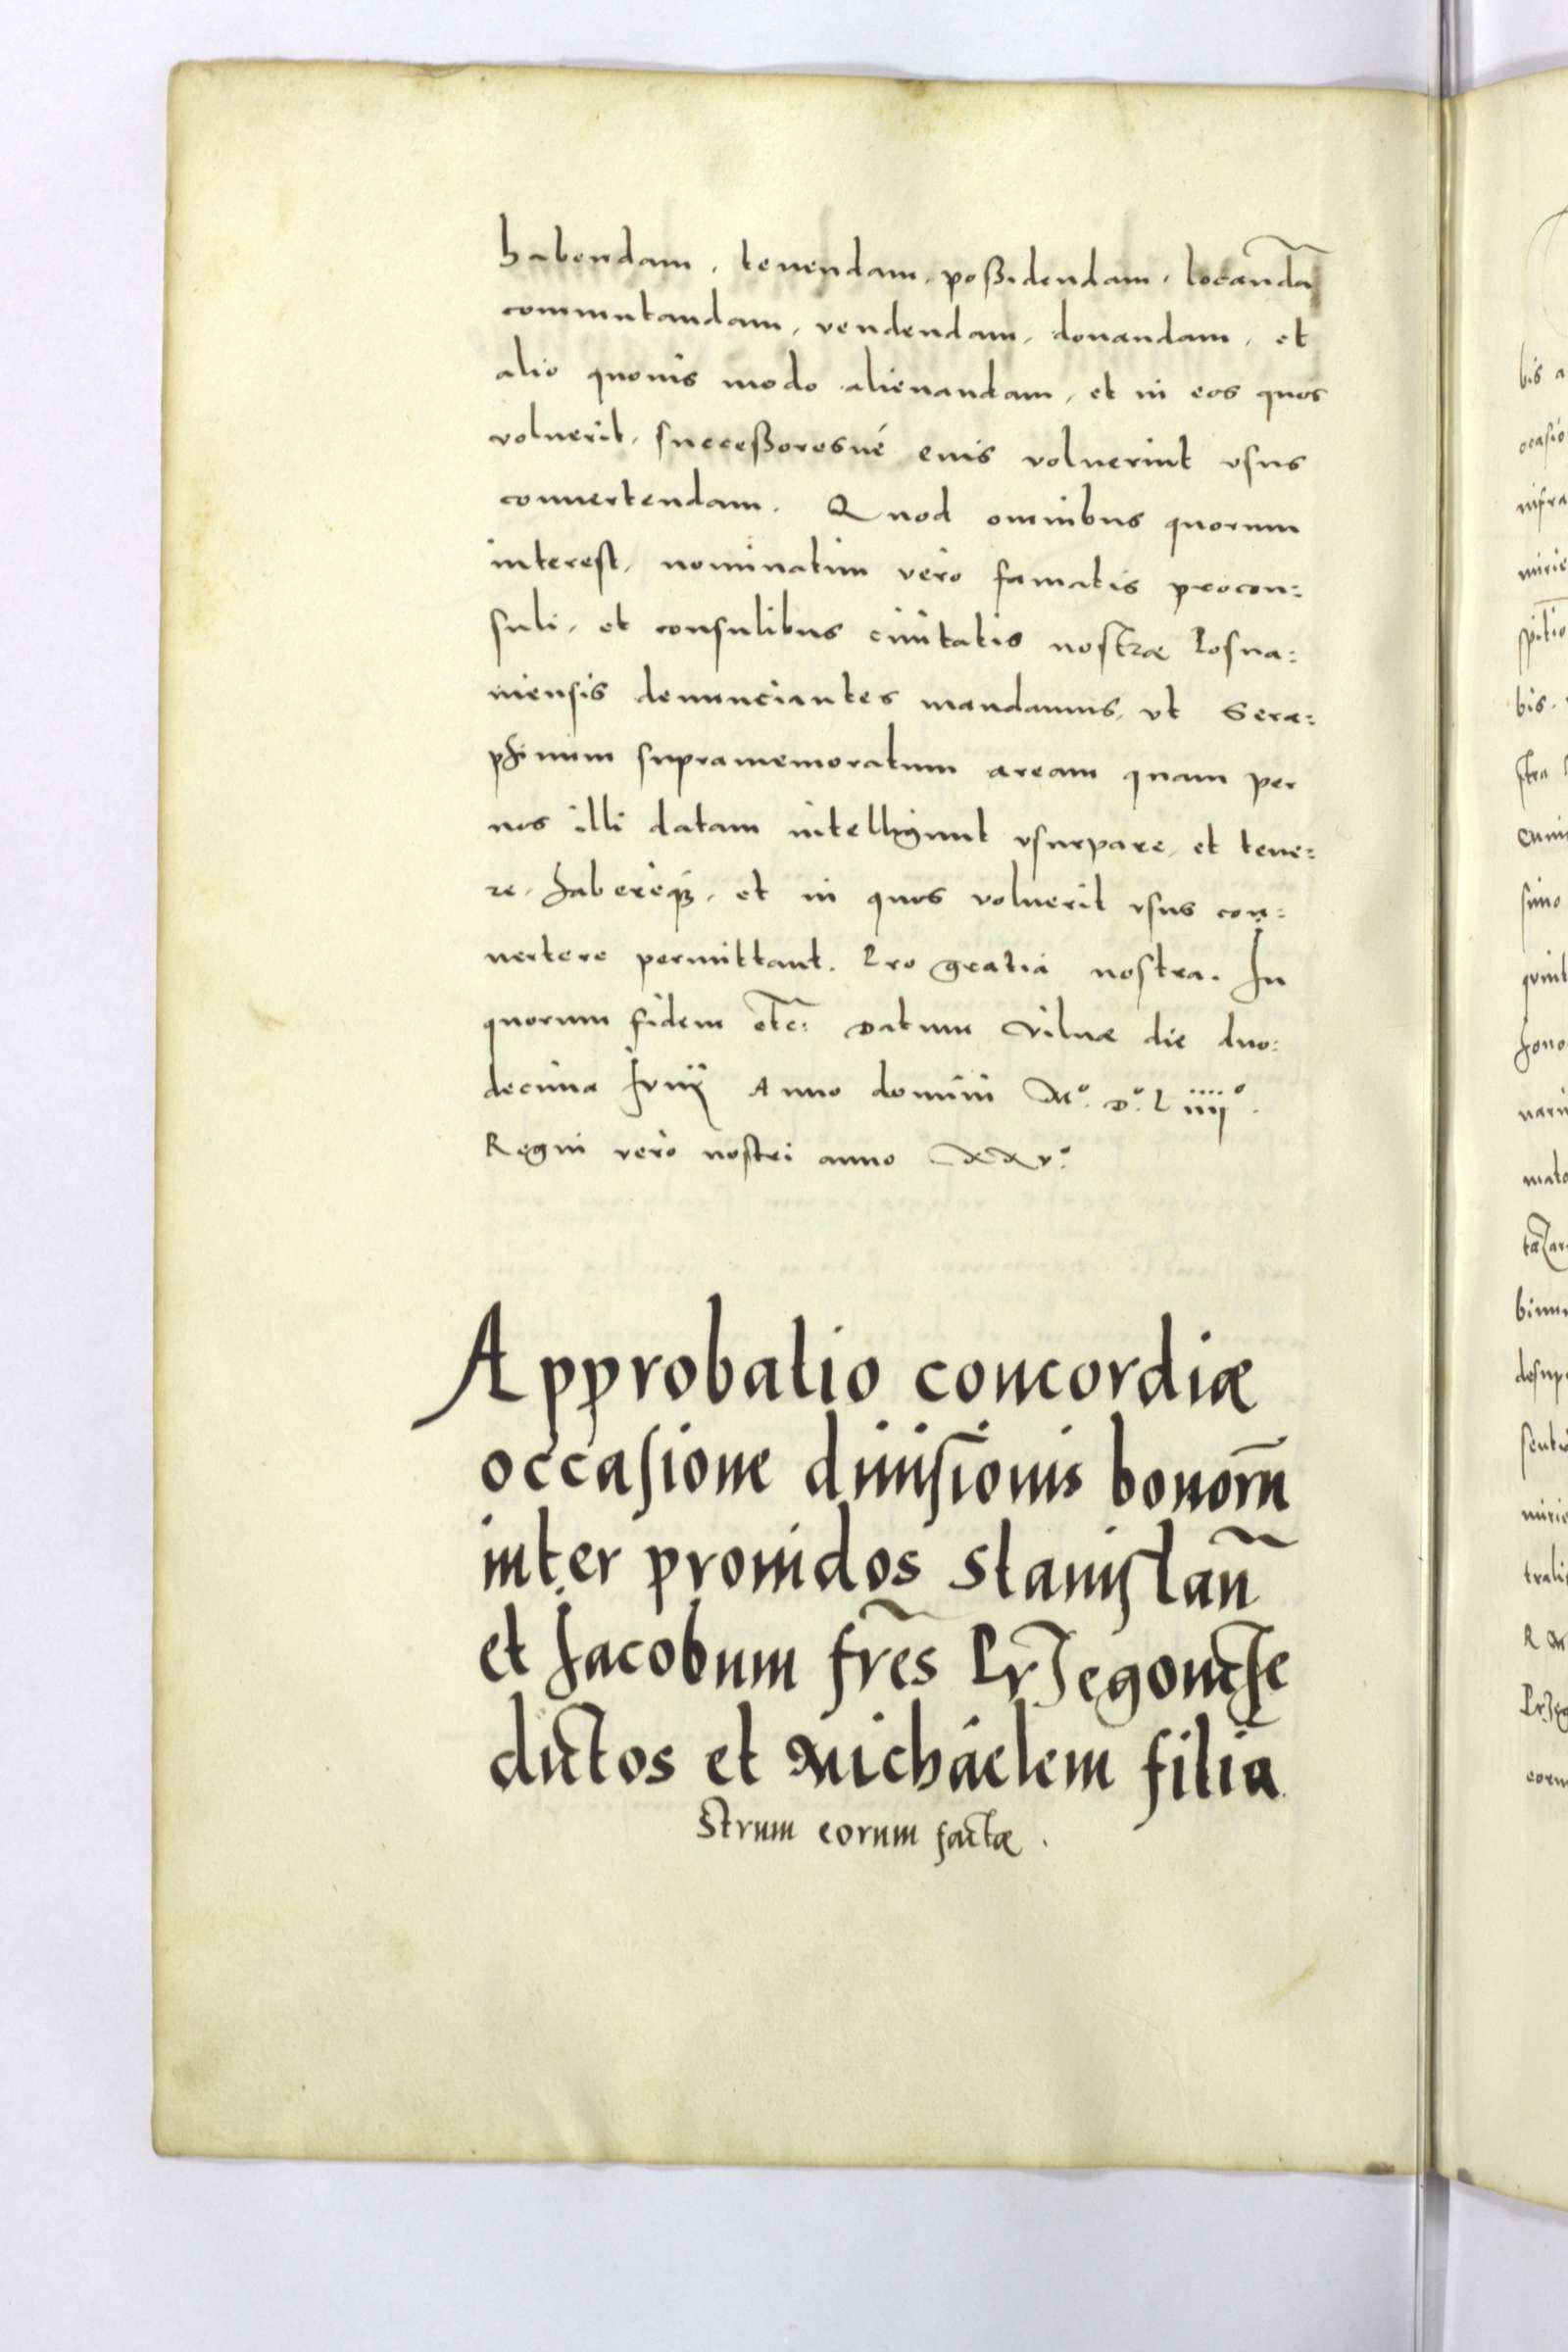 habendam, tenendam, poßidendam, locandã
commutandam, vendendam, donandam, et
alio quouis modo alienandam, et in eos quos
voluerit, succeßoresué euis voluerint vsus
conuertendam. Quod omnibus quorum
interest, nominatim vero famatis procon:
suli, et consulibus ciuitatis nostræ Posna:
niensis denunciantes mandamus, vt Sera:
phinum supramemoratum aream quam per
nos illi datam intelligunt vsurpare, et tene:
re, habereq́ꝫ, et in quos voluerit vsus con:
uertere permittant. Pro gratia nostra. In
quorum fidem etc̃: Datum Vilnæ die duo:
decima Iunij Anno domini Mº. Dº. L iiijº.
Regni vero nostri anno XXVº.
Approbatio concordiæ
occasione diuisionis bonorũ
inter prouidos Stanislaũ
et Jacobum frẽs Przegonche
dictos et Michaelem filia
strum eorum factæ.
bis a
ocasio
infra
bis.
stra
simo
quint
hono
mato
R M
Przeg